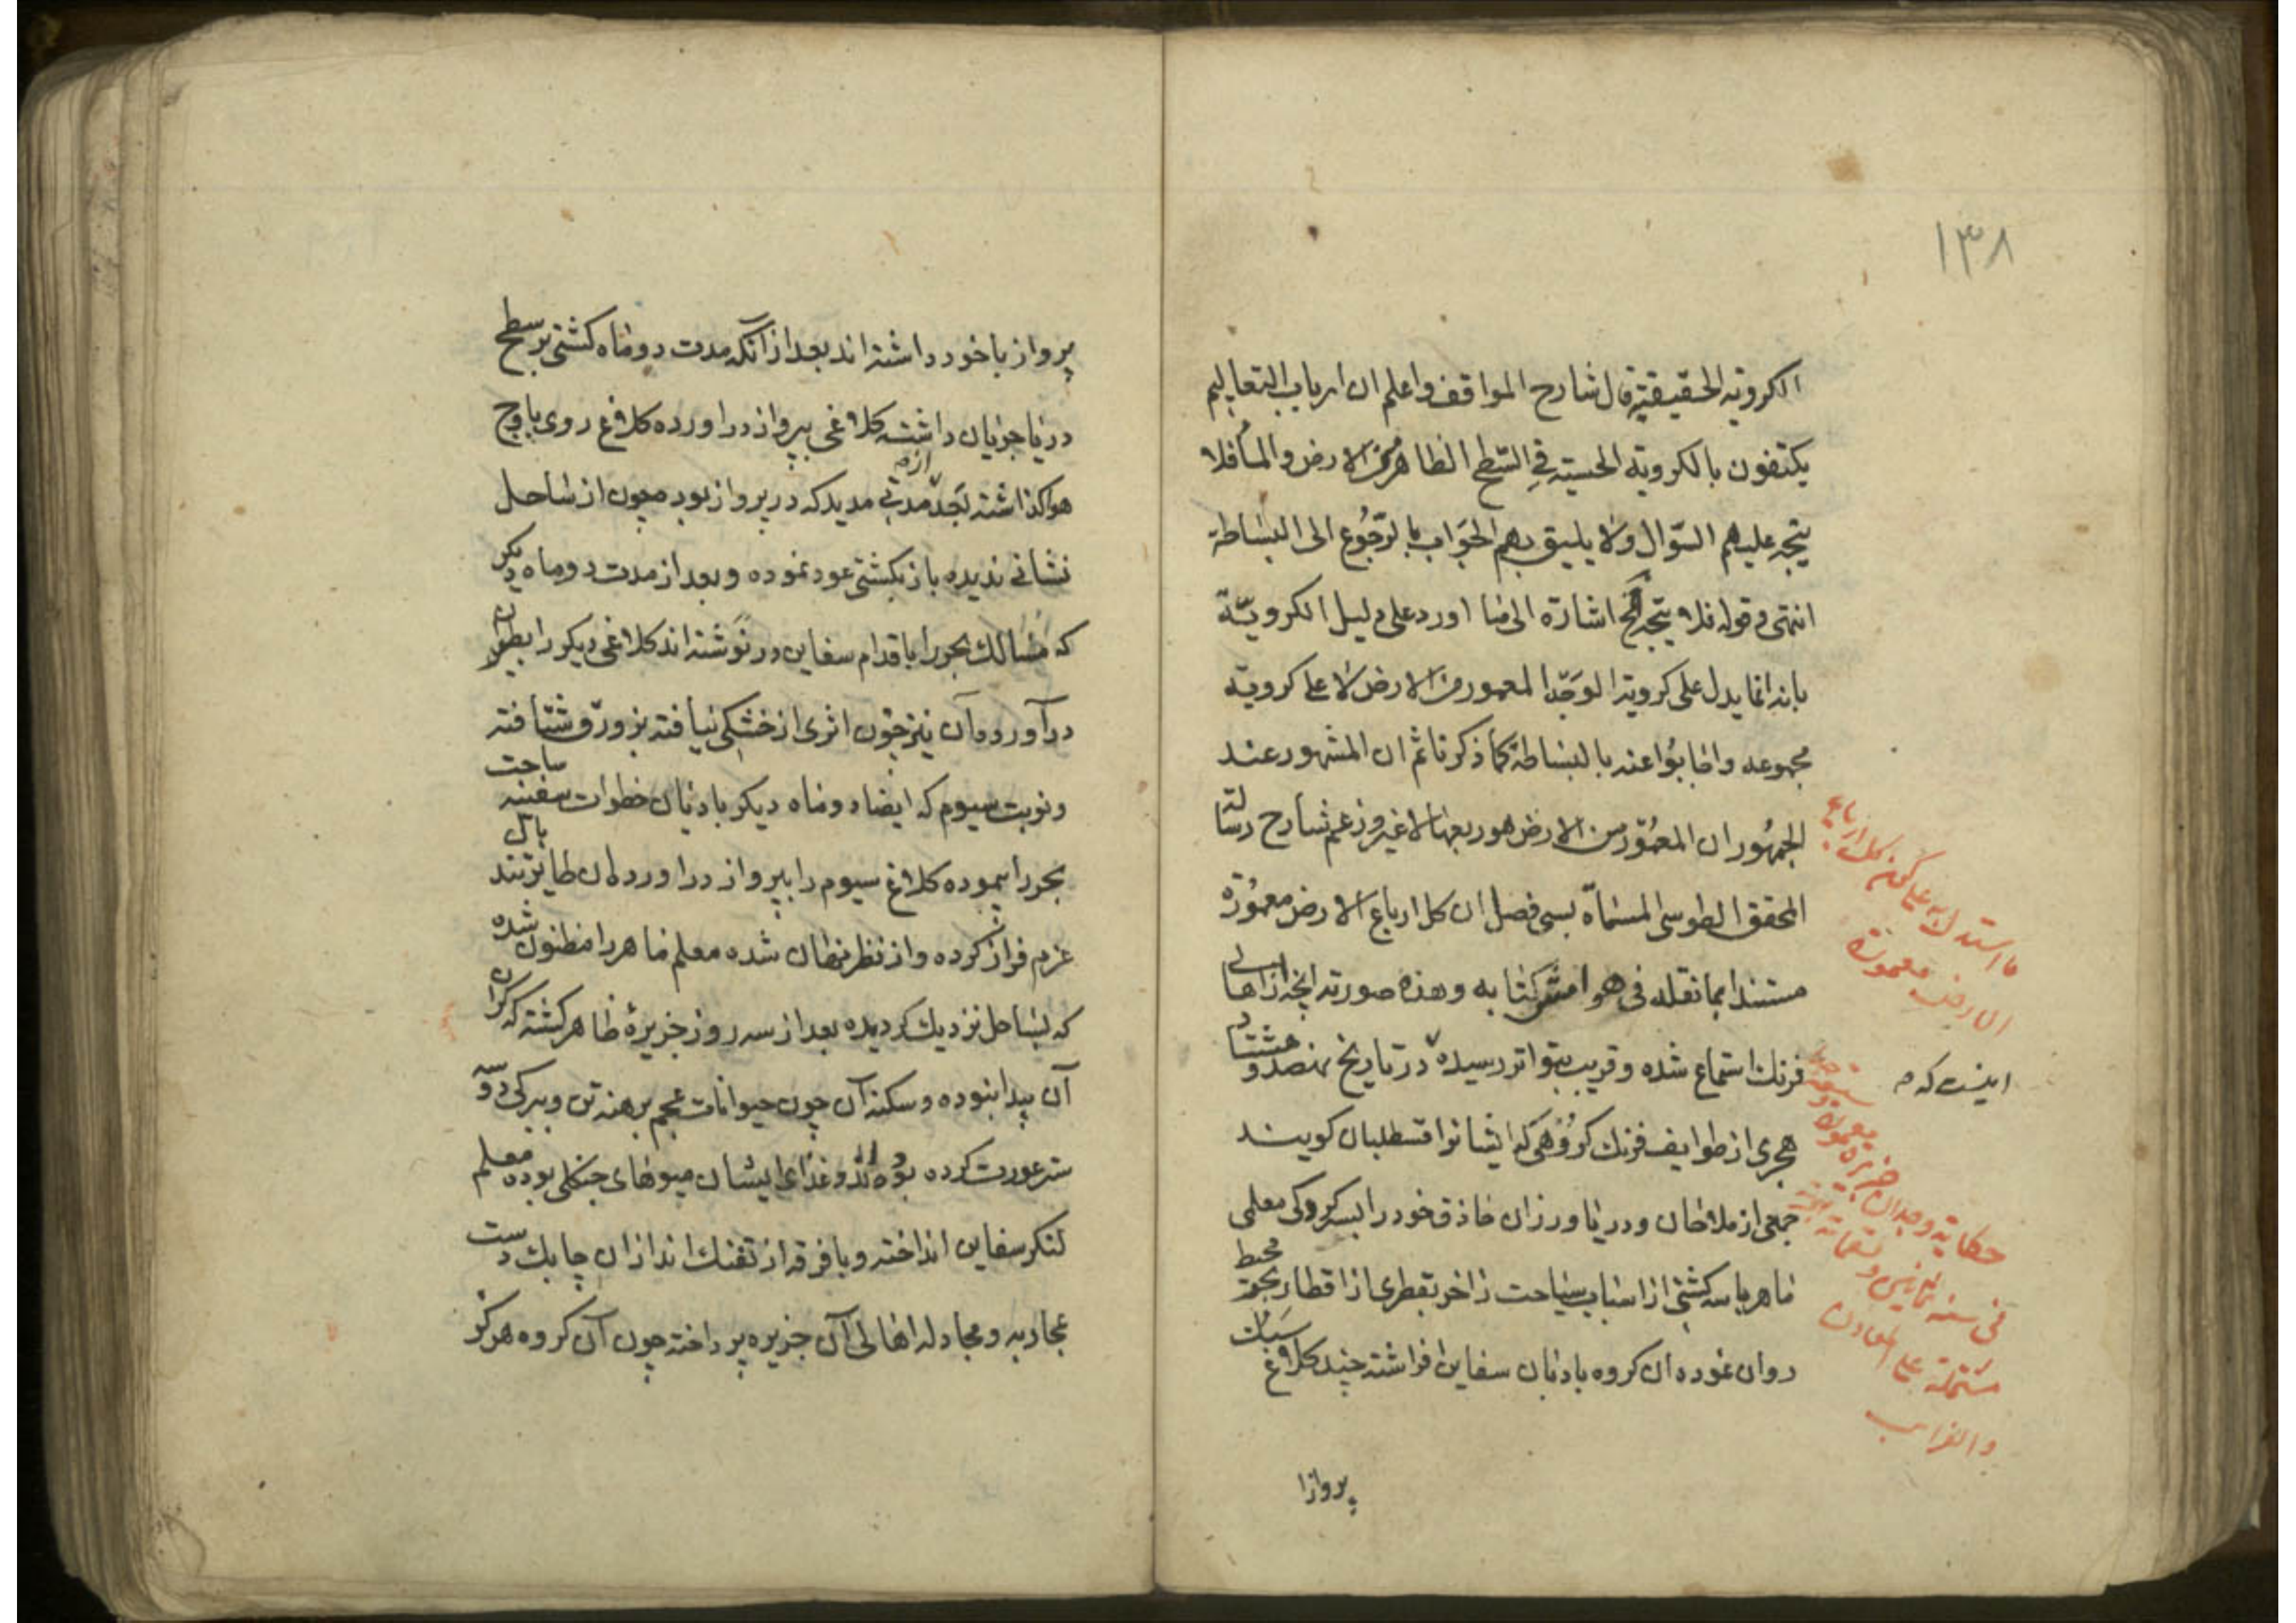 ۱۳۸
الكرویة الحقیقیة قال شارح المواقف واعلم ان ارباب التعالیم
یکتفون بالکرویة الحسیة فی السّطح الظاهر من الارض والماء فلا
یتجه علیهم السّوال ولا یلیق بهم الجَوَاب بالرّجُوع الی البساطة
انتهی وقوله فلا یتجه الخ اشارة الی ما اورد علی دلیل الکرویّة
بانه انما یدل علی کرویة الوجه المعمور من الارض لا علی کرویة
مجموعه واجابُوا عنه بالبساطة کما ذکرنا ثم ان المشهور عند
الجمهُور ان المعمُور من الارض هو ربعها لا غیر وزعم شارح رسالة
المحقق الطوسی المسماة بسی فصل ان کل ارباع الارض معمُورة
مستندا بما نقله فی هوامش کتابه وهذه صورته آنچه از اهالی
فرنك استماع شده و قریب بتواتر رسیده در تاریخ نهصد و هشتاد
هجری از طوایف فرنك گروُهی که ایشانرا قسطلیان کویند
جمعی از ملاحان و دریا ورزان حاذق خود را بسرکردکی معلمی
ماهر با سه کشتی از اسباب سیاحت زاخر بقطری از اقطار بحر محیط
روان نموده ان کروه بادبان سفاین افراشته چند کلاغ سَبك
پرواز ا
اینست که
ما استدل به علی کون کل ارباع
الارض معمورة
حکایة وجدان جزیرة معمورة
فی سنة ثمانین و تسعمائة
مشتملة علی المعادن
والغرایب
پرواز با خود داشته اند بعد از آنکه مدت دو ماه کشتی بر سطح
دریا جریان داشته کلاغی بپرواز دراورده کلاغ روی باوج
هوا کذاشته بعد از مدتی مدید که در پرواز بود چون از ساحل
نشانی ندیده باز بکشتی عود نموده و بعد از مدت دو ماه دیکر
که مسالك بحور را باقدام سفاین در نوشته اند کلاغی دیکر را بطیران
درآورده آن نیز چون اثری از خشکی نیافته بزورق شتافته
و نوبت سیوم که ایضا دو ماه دیکر بادبان خطوات سفینه ساحت
بحر را پیموده کلاغ سیوم را بپرواز دراورده ان طایر تند بال
عزم فراز کرده و از نظر نهان شده معلم ماهر را مظنون شده
که بساحل نزدیك کردیده بعد از سه روز جزیرهٔ ظاهر کشته که کران
آن پیدا نبوده و سکنه آن چون حیوانات عجم برهنه تن و ببرکی دو سه
ستر عورت کرده بوده اند و غذای ایشان میوهای جنکلی بوده معلم
لنکر سفاین انداخته و با فرقه از تفنك اندازان چابك دست
بمحاربه و مجادله اهالی آن جزیره پرداخته چون آن کروه هرکز